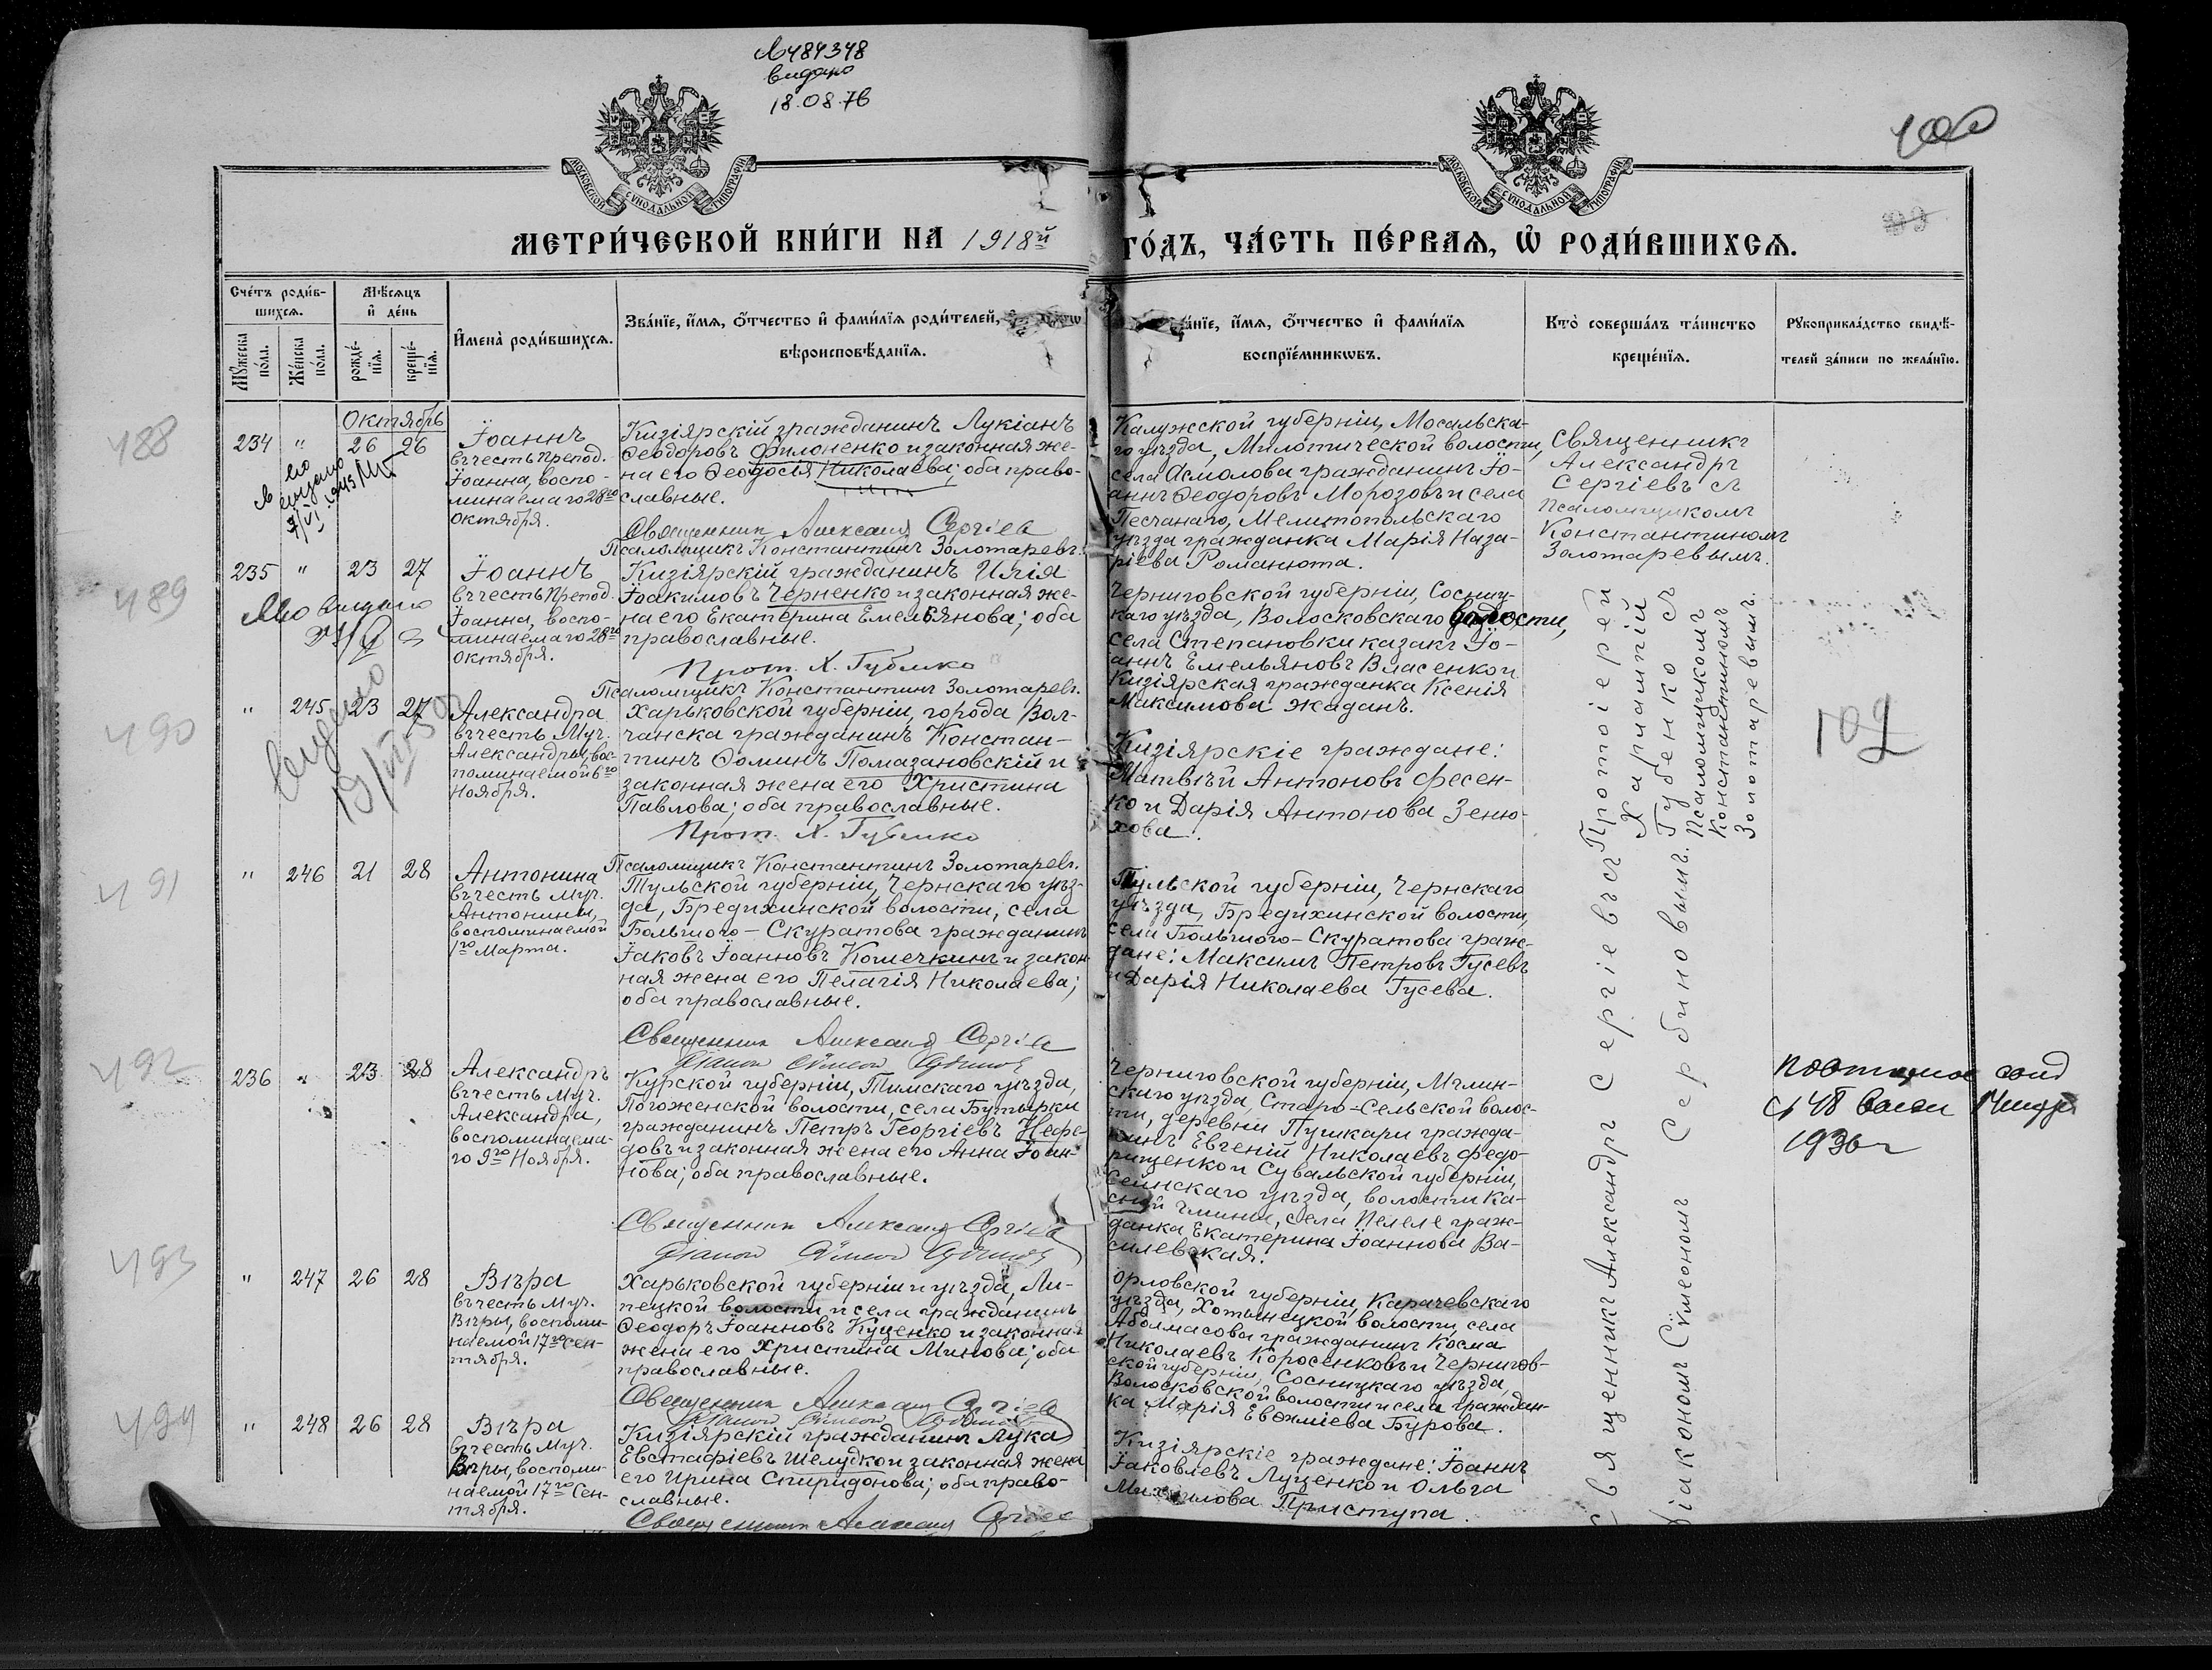 №484348
видано
18.08.76
МОСКОВСКОЙ СѴНОДАЛЬНОЙ ТИПОГРАФІИ
МОСКОВСКОЙ СѴНОДАЛЬНОЙ ТИПОГРАФІИ
100
99
МЕТРИ́ЧЕСКОЙ КНИ́ГИ НА 1918й
ГО́ДЪ, ЧА́СТЬ ПЕ́РВАЯ, Ѽ РОДИ́ВШИХСЯ.
Сче́тъ роди́в-
шихся.
Мѣ́сяцъ
и де́нь
Му́жеска по́ла.
Же́нска по́ла.
рожде́-нія.
креще́-нія.
Имена̀ роди́вшихся.
Зва́ніе, и́мя, о́тчество и фами́лія роди́телей,
вѣроисповѣ́данія.
а́ніе, и́мя, о́тчество и фами́лія
воспріе́мниковъ.
Кто̀ соверша́лъ та́инство
креще́нія.
Рукоприкла́дство свидѣ́-
телей за́писи по жела́нію.
Октябрь
488
234 " 26 26
Іоаннъ
въ честь Препод.
Іоанна, воспо-
минаемаго 28го
октября.
Кизіярскій гражданинъ Лукіанъ
Ѳеодоровъ Филоненко и законная же-
на его Ѳеодосія Николаева; оба право-
славные.
Священник Александ Сергіев
Псаломщикъ Константинъ Золотаревъ.
Калужской губерніи, Мосальска-
го уѣзда, Милотической волости,
села Асмолова гражданинъ Іо-
аннъ Ѳеодоровъ Морозовъ и села
Песчанаго, Мелитопольскаго
уѣзда гражданка Марія Наза-
ріева Романюта.
Священникъ
Александръ
Сергіевъ съ
псаломщикомъ
Константиномъ
Золотаревымъ.
489
235 " 23 27
Іоаннъ
въ честь Препод.
Іоанна, воспо-
минаемаго 28го
октября.
Кизіярскій гражданинъ Илія
Іоакимовъ Черненко и законная же-
на его Екатерина Емельянова; оба
православные.
Прот. Х. Губенко
Псаломщикъ Константинъ Золотаревъ.
Черниговской губерніи, Сосниц-
каго уѣзда, Волосковскаго волости,
села Степановки казакъ Іо-
аннъ Емельяновъ Власенко и
Кизіярская гражданка Ксенія
Максимова Жаданъ.
490
" 245 23 27
Александра
въ честь Муч.
Александры, вос-
поминаемой 6го
Ноября.
Харьковской губерніи, города Вол-
чанска гражданинъ Констан-
тинъ Ѳоминъ Помазановскій и
законная жена его Христина
Павлова; оба православные.
Прот. Х. Губенко
Псаломщикъ Константинъ Золотаревъ.
Кизіярскіе граждане:
Матвѣй Антоновъ Фесен-
ко и Дарія Антонова Зеню-
хова.
Протоіерей
Харлампій
Губенко съ
Псаломщикомъ
Константиномъ
Золотаревымъ.
102
491
" 246 21 28
Антонина
въ честь Муч.
Антонины,
воспоминаемой
1го Марта.
Тульской губерніи, Чернскаго уѣз-
да, Бредихинской волости, села
Большого-Скуратова гражданинъ
Іаковъ Іоанновъ Кошечкинъ и закон-
ная жена его Пелагія Николаева;
оба православные.
Священник Александ Сергіев
Тульской губерніи, Чернскаго
уѣзда, Бредихинской волости,
села Большого-Скуратова граж-
дане: Максимъ Петровъ Гусевъ
и Дарія Николаева Гусева.
492
236 " 23 28
Александръ
въ честь Муч.
Александра,
воспоминаема-
го 9го Ноября.
Курской губерніи, Тимскаго уѣзда,
Погоженской волости, села Бутырки
гражданинъ Петръ Георгіевъ Нефе-
довъ и законная жена его Анна Іоан-
нова; оба православные.
Священник Александ Сергіев
Черниговской губерніи, Мглин-
скаго уѣзда, Старо-Сельской волос-
ти, деревни Пушкари гражда-
нинъ Евгеній Николаевъ Федо-
рищенко и Сувальской губерніи,
Сейнскаго уѣзда, волости Ка-
сной гмины, села Пелеле граж-
данка Екатерина Іоаннова Ва-
силевская.
1936 г
493
" 247 26 28
Вѣра
въ честь Муч.
Вѣры, воспоми-
наемой 17го Сен-
тября.
Харьковской губерніи и уѣзда, Ли-
пецкой волости и села гражданинъ
Ѳеодоръ Іоанновъ Куценко и законная
жена его Христина Минова; оба
православные.
Священник Александ Сергіев
Орловской губерніи, Карачевскаго
уѣзда, Хотынецкой волости, села
Аболмасова гражданинъ Косма
Николаевъ Коросенковъ и Чернигов-
ской губерніи, Сосницкаго уѣзда,
Волосковской волости и села граждан-
ка Марія Евѳиміева Бурова.
494
" 248 26 28
Вѣра
въ честь Муч.
Вѣры, воспоми-
наемой 17го Сен-
тября.
Кизіярскій гражданинъ Лука
Евстафіевъ Шелудко и законная жена
его Ирина Спиридонова; оба право-
славные.
Священник Александ Сергіев
Кизіярскіе граждане: Іоаннъ
Іаковлевъ Луценко и Ольга
Михайлова Приступа.
Священникъ Александръ Сергіевъ съ
діакономъ Сѵмеономъ Сербиновымъ.